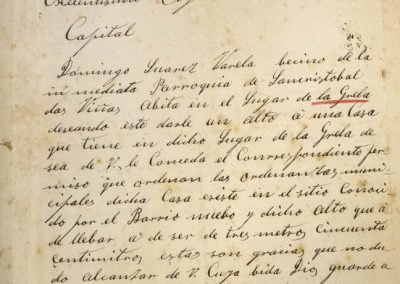 Excelentisimo
Capital
Domingo Suarez Varela becino de la
in mediata Parroquia de Sancristobal
das Viñas Abita en el Lugar de la Grela
deseando este darle un alto a una Casa
que tiene en dicho Lugar de la Grela de
sea de V. le Conceda el Conrrespondiente per
miso que ordenan las ordenanzas muni
cipales dicha Casa esiste en el sitio Conoci
do por el Barrio nuebo y dicho Alto que a
de llebar a de ser de tres metros Cincuenta
Centimitros estas son gracias que no du
do alcanzar de V. Cuya bida Dios guarde a